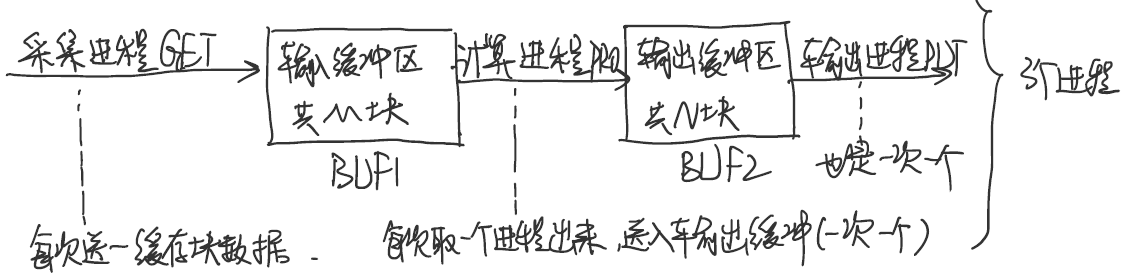 采集进程GET
输入缓冲区
共M块
BUF1
计算进程PRO
输出缓冲区
共N块
BUF2
输出进程PUT
也是一次一个
3个进程
每次送一缓存块数据.
每次取一个进程出来,送入输出缓冲(一次一个)